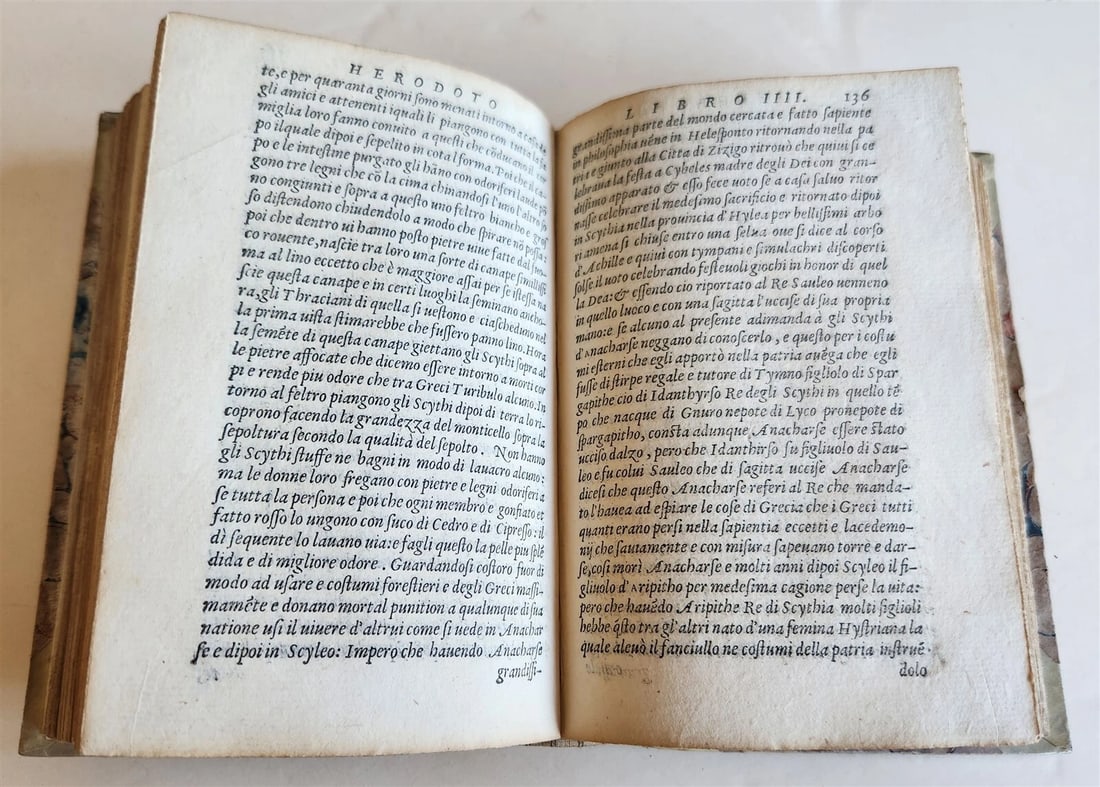 HERODOTO
te, e per quaranta giorni sono menati intorno a tutti
gli amici e attenenti iquali li piangono con tutta la fa
miglia loro fanno conuito a questi che cōducano il cor
po ilquale dipoi e sepelito in cotal forma. Poi che il ca-
po e le intestine purgato gli hāno con odoriferi laude pō
gono tre legni che cō la cima chinandosi l'uno l'altro si
no congiunti e sopra a questo uno feltro biancho e gros
so distendono chiudendolo a modo che spirare nō possa:
poi che dentro ui hanno posto pietre uiue fatte dal fuo-
co rouente, nascie tra loro una sorte di canape simillissi
ma al lino eccetto che è maggiore assai per se istessa na
scie questa canape e in certi luoghi la seminano ancho-
ra, gli Thraciani di quella si uestono e ciascheduno nel
la prima uista stimarebbe che fussero panno lino. Hora
la semēte di questa canape giettano gli Scythi sopra al
le pietre affocate che dicemo essere intorno a morti cor
pi e rende piu odore che tra Greci Turibulo alcuno. In
torno al feltro piangono gli Scythi dipoi di terra lo ri-
coprono facendo la grandezza del monticello sopra la
sepoltura secondo la qualità del sepolto. Non hanno
gli Scythi stuffe ne bagni in modo di lauacro alcuno:
ma le donne loro fregano con pietre e legni odoriferi a
se tutta la persona e poi che ogni membro e gonfiato et
fatto rosso lo ungono con suco di Cedro e di Cipresso: il
dì sequente lo lauano uia: e fagli questo la pelle piu splē
dida e di migliore odore. Guardandosi costoro fuor di
modo ad usare e costumi forestieri e degli Greci massi-
mamēte e donano mortal punition a qualunque di sua
natione usi il uiuere d'altrui come si uede in Anachar
se e dipoi in Scyleo: Impero che hauendo Anacharse
grandissi-
LIBRO IIII. 136
grandissima parte del mondo cercata e fatto sapiente
in philosophia uēne in Helesponto ritornando nella pa
tria e giunto alla Citta di Zizigo ritrouò che quiui si ce
lebraua la festa a Cybeles madre degli Dei con gran-
dissimo apparato & esso fece uoto se a casa saluo ritor
nasse celebrare il medesimo sacrificio e ritornato dipoi
in Scythia nella prouincia d'Hylea per bellissimi arbo
ri amena si chiuse entro una selua oue si dice al corso
d'Achille e quiui con tympani e simulachri discoperti
solse il uoto celebrando festeuoli giochi in honor di quel
la Dea: & essendo cio riportato al Re Sauleo uenneno
in quello luoco e con una sagitta l'uccise di sua propria
mano: e se alcuno al presente adimanda à gli Scythi
d'Anacharse neggano di conoscerlo, e questo per i costu
mi esterni che egli apportò nella patria auēga che egli
fusse di stirpe regale e tutore di Tymno figliolo di Spar
gapithe cio di Idanthyrso Re degli Scythi in quello tē
po che nacque di Gnuro nepote di Lyco pronepote di
Spargapitho, consta adunque Anacharse essere stato
ucciso dalzo, pero che Idanthirso fu figliuolo di Sau-
leo e fu colui Sauleo che di sagitta uccise Anacharse
dicesi che questo Anacharse referi al Re che manda-
to l'hauea ad espiare le cose di Grecia che i Greci tutti
quanti erano persi nella sapientia eccetti e lacedemo-
nij che sautamente e con misura sapeuano torre e dar-
se, cosi morì Anacharse e molti anni dipoi Scyleo il fi-
gliuolo d'Aripitho per medesima cagione perse la uita:
pero che hauēdo Aripithe Re di Scythia molti figlioli
hebbe q̄sto tra gl'altri nato d'una femina Hystriana la
quale aleuò il fanciullo ne costumi della patria instruē-
dolo